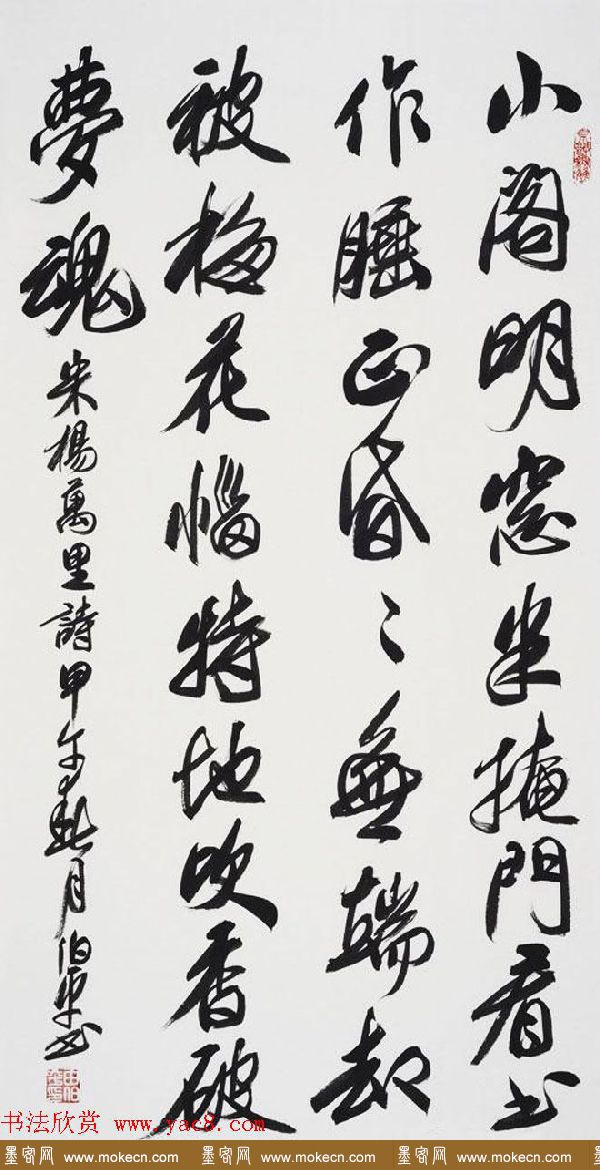 小閣明窓半掩門看書
作睡正昏〻無端却
被梅花惱特地吹香破
夢魂
宋楊萬里詩甲午秋月伯平書
书法欣赏 www.yac8.com
墨客网 www.mokecn.com 墨客网 www.mokecn.com 墨客网 www.mokecn.com